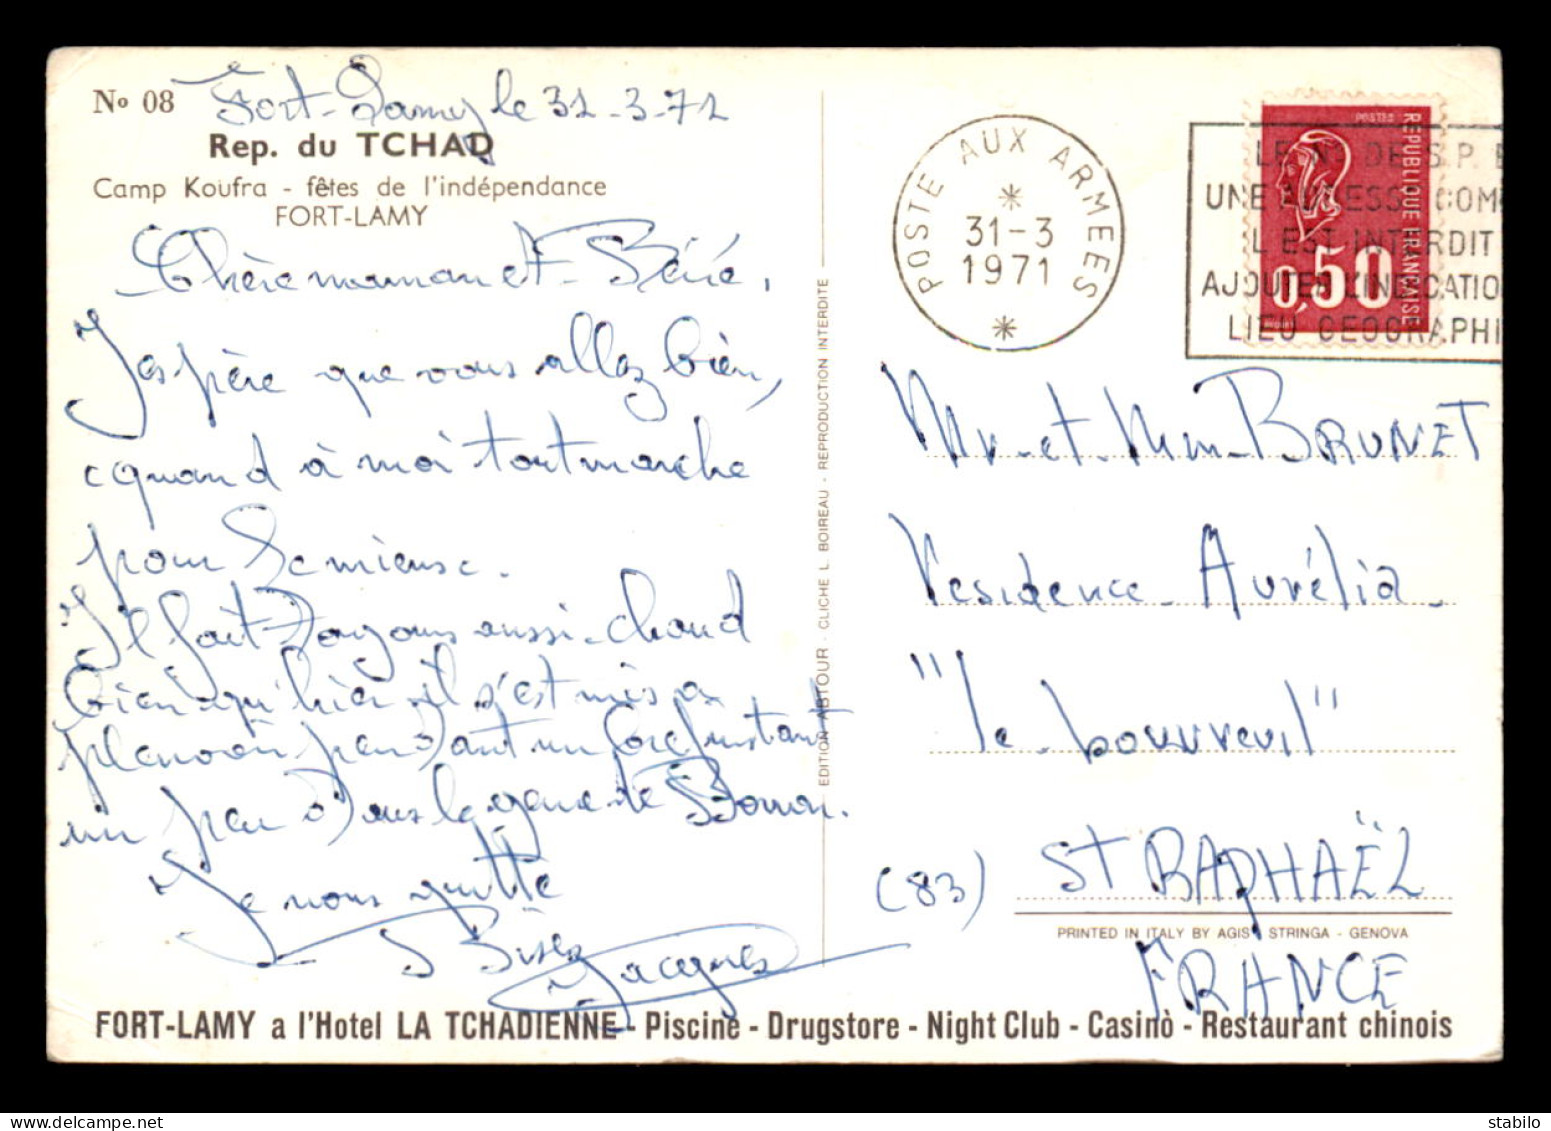 No 08
Fort-Lamy le 31-3-71
Rep. du TCHAD
Camp Koufra - fêtes de l'indépendance
FORT-LAMY
Chère maman et
J'espère que vous allez bien,
quand à moi tout marche
pour le mieux.
Il fait toujours aussi chaud
bien qu'hier il s'est mis a
pleuvoir pendant un instant
un peu dans le genre de
Je vous quitte
Bises
Jacques
EDITION ABTOUR - CLICHE L. BOIREAU - REPRODUCTION INTERDITE
POSTE AUX ARMEES
31-3
1971
LE N° DE S.P. E
UNE ADRESSE COM
IL EST INTERDIT
AJOUTER L'INDICATIO
LIEU GEOGRAPHI
POSTES
REPUBLIQUE FRANCAISE
0,50
Mr et Mm BRUNET
résidence Aurélia
"le bouvreuil"
(83) ST RAPHAËL
PRINTED IN ITALY BY AGIS STRINGA - GENOVA
FRANCE
FORT-LAMY a l'Hotel LA TCHADIENNE - Piscine - Drugstore - Night Club - Casinò - Restaurant chinois
delcampe.net
stabilo